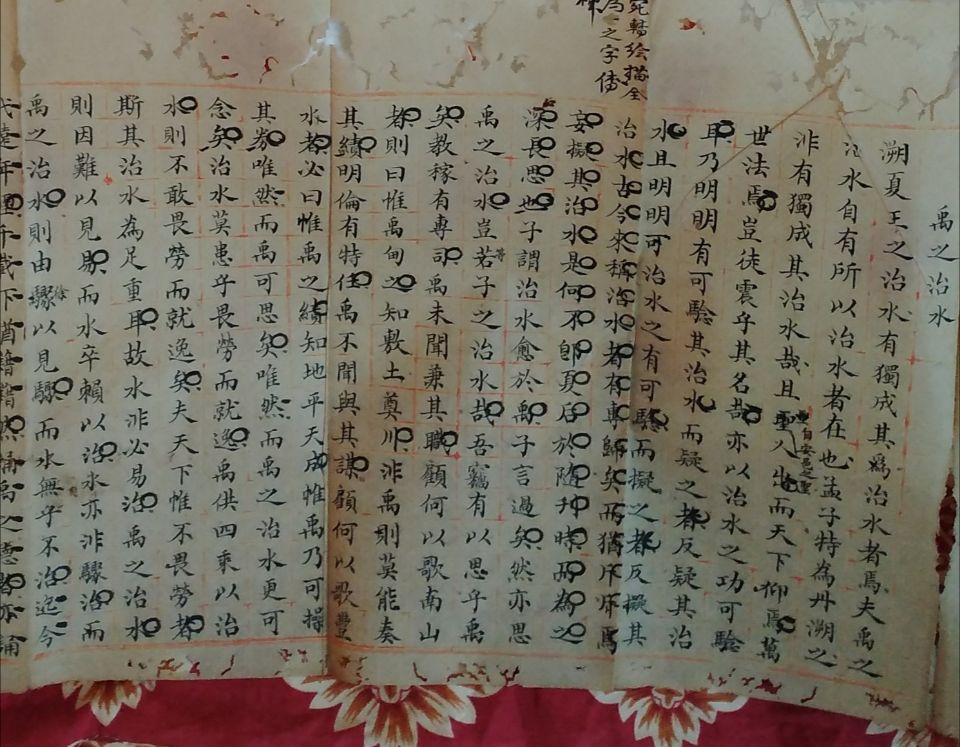 宛轉繪描全
為一之字傳
神
禹之治水
溯夏王之治水有獨成其為治水者焉夫禹之
治水自有所以治水者在也孟子特為丹溯之
非有獨成其治水哉且聖人出而天下仰焉萬
世法焉豈徒震乎其名哉亦以治水之功可驗
耳乃明明有可驗其治水而疑之者反疑其治
水且明明可治水之有可驗而擬之者反擬其
治水古今來稱治水者有專歸矣而猶斤斤焉
妄擬其治水是何不即夏后於隨刊時而為之
深長思也子謂治水愈於禹子言過矣然亦思
禹之治水豈若子之治水哉吾竊有以思乎禹
矣教稼有專司禹未聞兼其職顧何以歌南山
者則曰惟禹甸之知敷土奠川非禹則莫能奏
其績明倫有特任禹不聞與其謀顧何以歌豐
水者必曰惟禹之績知地平天成惟禹乃可操
其券唯然而禹可思矣唯然而禹之治水更可
念矣治水莫患乎畏勞而就逸禹供四乘以治
水則不敢畏勞而就逸矣夫天下惟不畏勞者
斯其治水為足重耳故水非必易治禹之治水
則因難以見易而水卒賴以治水亦非驟治而
禹之治水則由徐以見驟而水無乎不治迄今
代遠年湮千載下